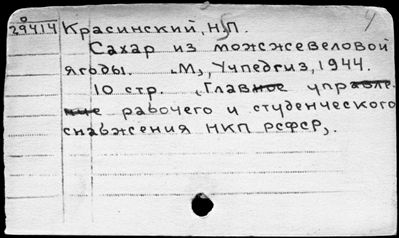 О
29414 Красинский, Н.П.
Сахар из можжевеловой
ягоды. М., Учпедгиз, 1944.
10 стр. (Главное управле-
ние рабочего и студенческого
снабжения НКП РСФСР).